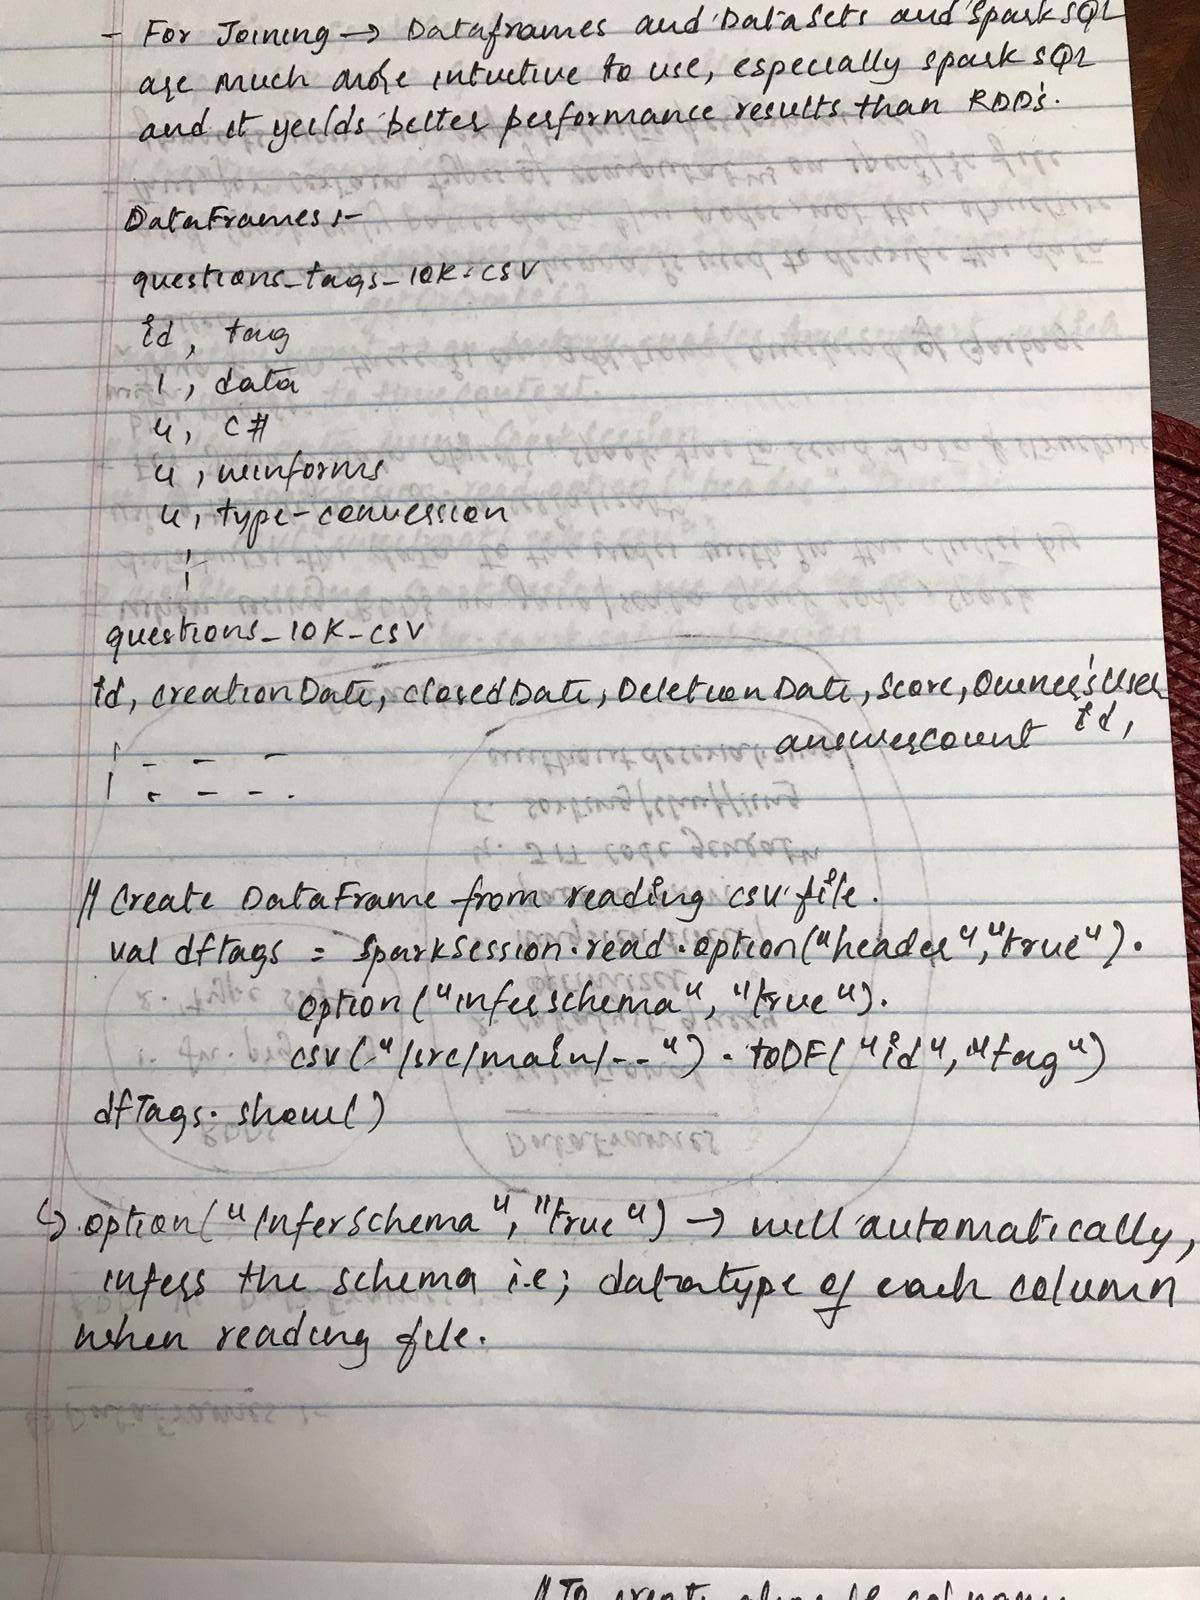 - For Joining → Dataframes and DataSets and Spark SQL
are much more intuitive to use, especially spark SQL
and it yeilds better performance results than RDD's.
DataFrames :-
questions_tags_10K.csv
id, tag
1, data
4, C#
4, winforms
4, type-conversion
questions_10K_csv
id, creationDate, closedDate, DeletionDate, Score, Owner'sUser
id,
answercount
// Create DataFrame from reading csv file.
val dftags = SparkSession.read.option("header", "true").
option("inferschema", "true").
csv("/src/main/--").toDF("id", "tag")
dfTags.show()
↳ .option("InferSchema", "true") → will automatically,
infers the schema i.e; datatype of each column
when reading file.